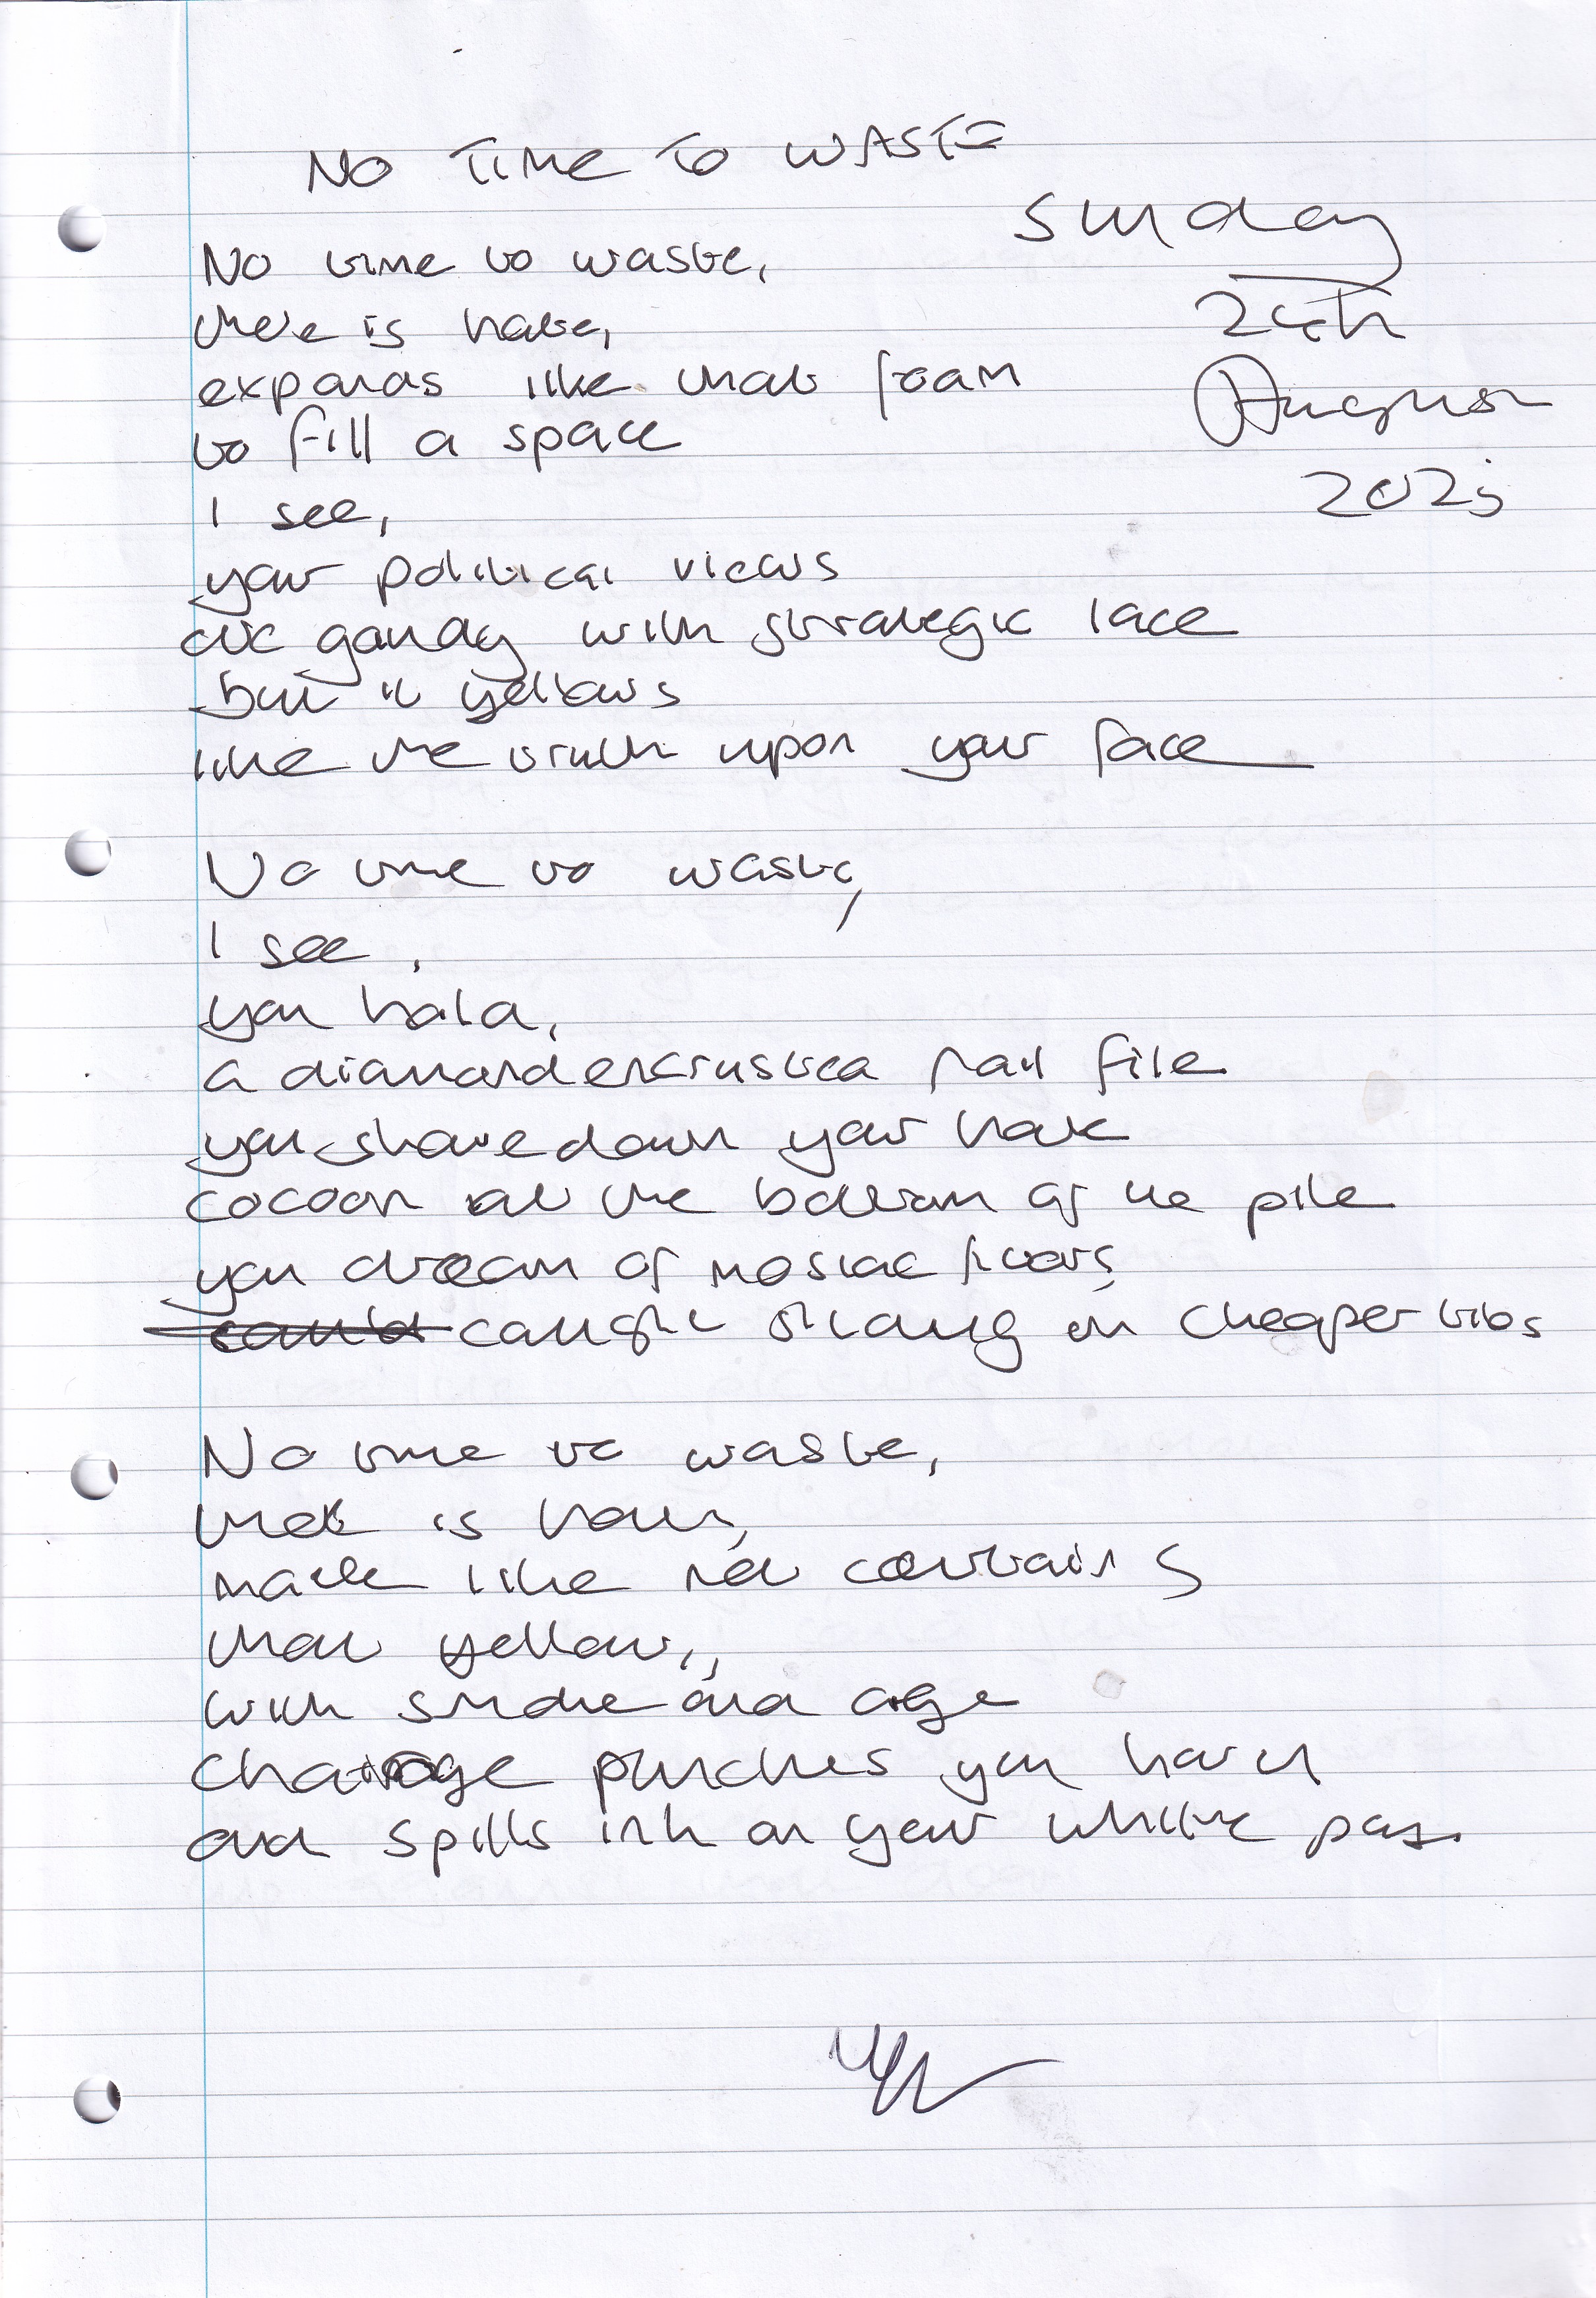 NO TIME TO WASTE
Sunday
24th
August
2025
No time to waste,
there is hate,
expands like that foam
to fill a space
I see,
your political views
are gaudy with strategic lace
but it yellows
like the truth upon your face
No time to waste,
I see,
you hold,
a diamond encrusted nail file
you shave down your hate
cocoon at the bottom of the pile
you dream of mosiac floors
caught skating on cheaper tiles
No time to waste,
that is
made like net curtains
that yellow,
with smoke and age
change punches you hard
and spills ink on your white page